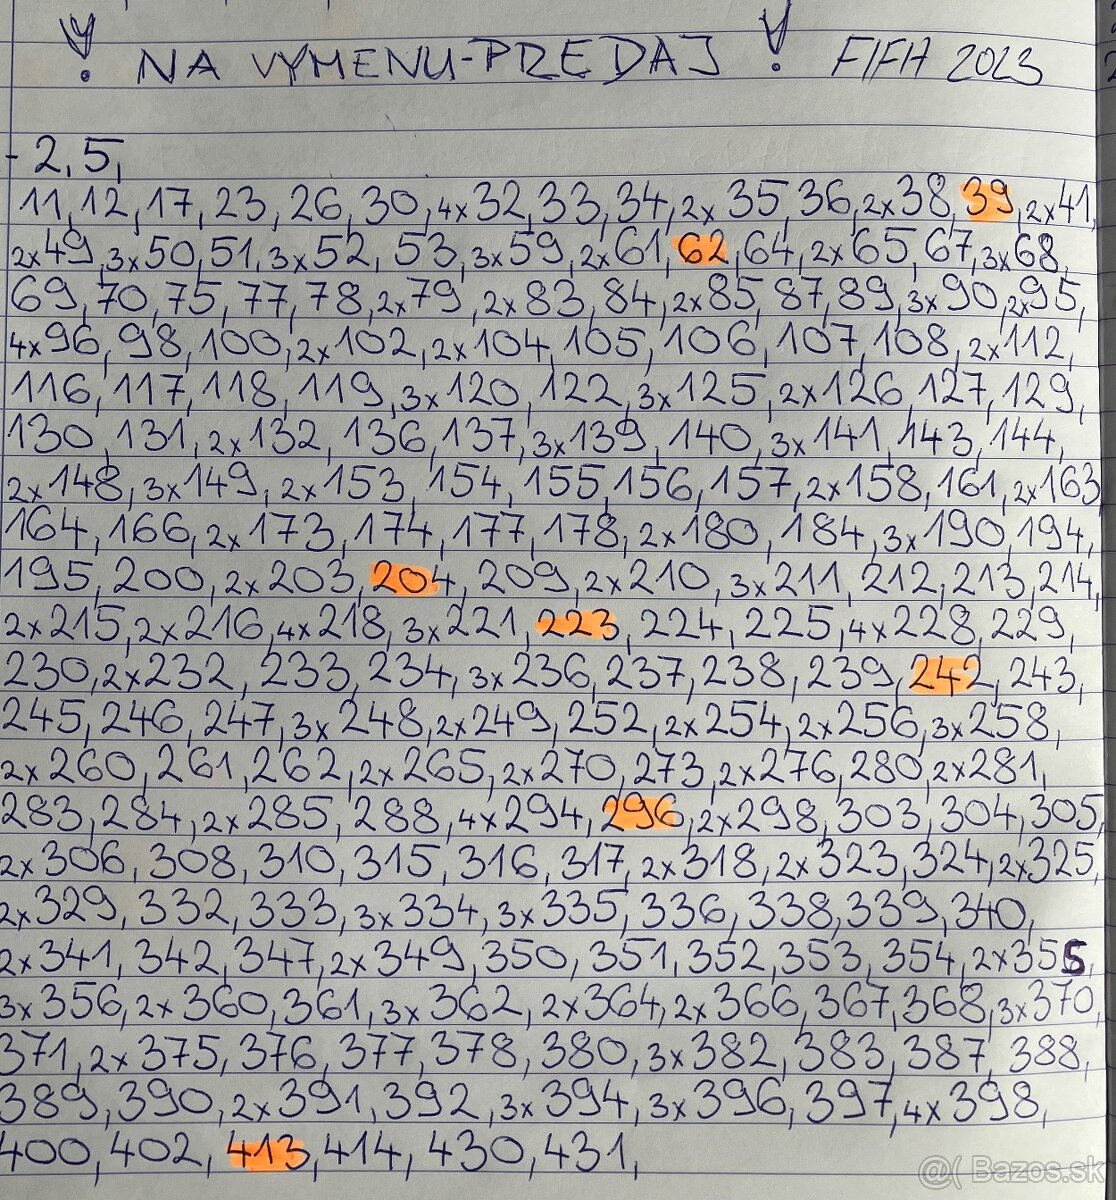 ! NA VYMENU-PREDAJ ! FIFA 2023
- 2, 5,
11, 12, 17, 23, 26, 30, 4x32, 33, 34, 2x35, 36, 2x38, 39, 2x41,
2x49, 3x50, 51, 3x52, 53, 3x59, 2x61, 62, 64, 2x65, 67, 3x68,
69, 70, 75, 77, 78, 2x79, 2x83, 84, 2x85, 87, 89, 3x90, 2x95,
4x96, 98, 100, 2x102, 2x104, 105, 106, 107, 108, 2x112,
116, 117, 118, 119, 3x120, 122, 3x125, 2x126, 127, 129,
130, 131, 2x132, 136, 137, 3x139, 140, 3x141, 143, 144,
2x148, 3x149, 2x153, 154, 155, 156, 157, 2x158, 161, 2x163
164, 166, 2x173, 174, 177, 178, 2x180, 184, 3x190, 194,
195, 200, 2x203, 204, 209, 2x210, 3x211, 212, 213, 214,
2x215, 2x216, 4x218, 3x221, 223, 224, 225, 4x228, 229,
230, 2x232, 233, 234, 3x236, 237, 238, 239, 242, 243,
245, 246, 247, 3x248, 2x249, 252, 2x254, 2x256, 3x258,
2x260, 261, 262, 2x265, 2x270, 273, 2x276, 280, 2x281,
283, 284, 2x285, 288, 4x294, 296, 2x298, 303, 304, 305,
2x306, 308, 310, 315, 316, 317, 2x318, 2x323, 324, 2x325,
2x329, 332, 333, 3x334, 3x335, 336, 338, 339, 340,
2x341, 342, 347, 2x349, 350, 351, 352, 353, 354, 2x355,
3x356, 2x360, 361, 3x362, 2x364, 2x366, 367, 368, 3x370,
371, 2x375, 376, 377, 378, 380, 3x382, 383, 387, 388,
389, 390, 2x391, 392, 3x394, 3x396, 397, 4x398,
400, 402, 413, 414, 430, 431,
@( Bazos.sk